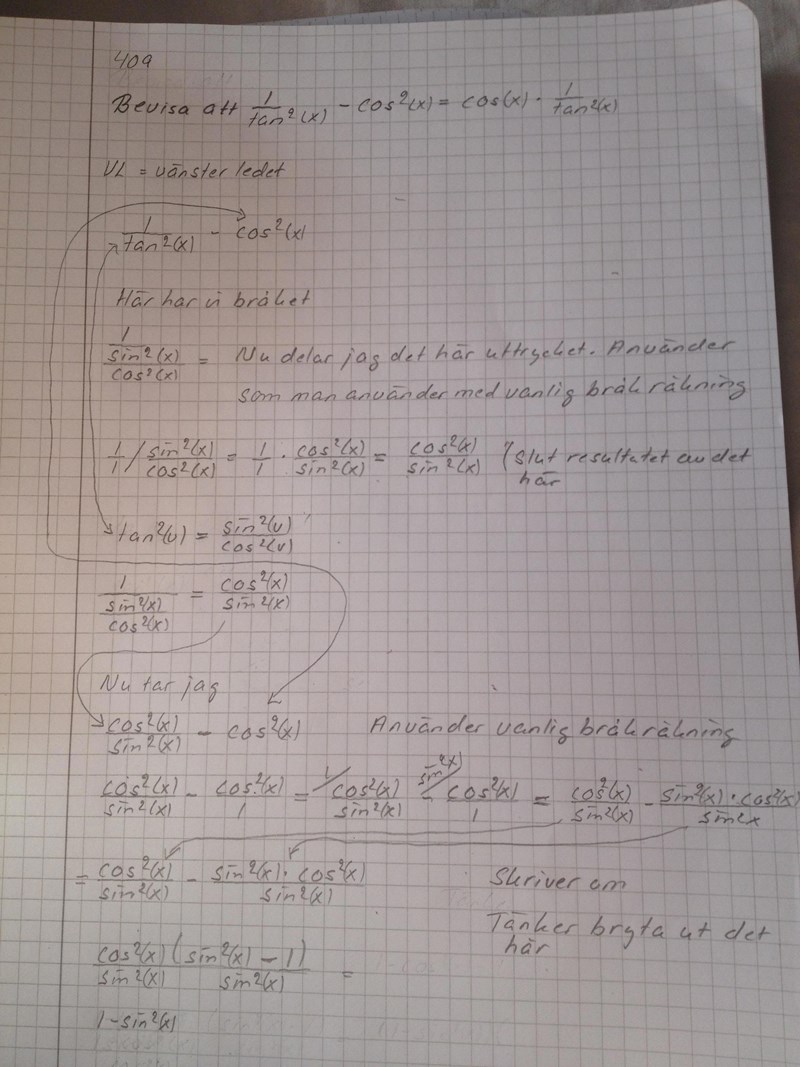 409
Bevisa att 1/tan²(x) - cos²(x) = cos(x) · 1/tan²(x)
VL = vänster ledet
1/tan²(x) - cos²(x)
Här har vi bråket
1/(sin²(x)/cos²(x)) = Nu delar jag det här uttrycket. Använder
som man använder med vanlig bråk räkning
1/1 / sin²(x)/cos²(x) = 1/1 · cos²(x)/sin²(x) = cos²(x)/sin²(x) (Slut resultatet av det
här
tan²(v) = sin²(v)/cos²(v)
1/(sin²(x)/cos²(x)) = cos²(x)/sin²(x)
Nu tar jag
cos²(x)/sin²(x) - cos²(x) Använder vanlig bråkräkning
cos²(x)/sin²(x) - cos²(x)/1 = 1/ cos²(x)/sin²(x) - sin²(x)/ cos²(x)/1 = cos²(x)/sin²(x) - sin²(x) · cos²(x)/sin²x
= cos²(x)/sin²(x) - sin²(x) · cos²(x)/sin²(x) Skriver om
Tänker bryta ut det
här
cos²(x)/sin²(x) (sin²(x) - 1)/sin²(x) =
1-sin²(x)